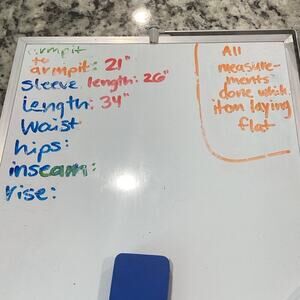 armpit
to
armpit: 21"
Sleeve length: 26"
Length: 34"
Waist
hips:
inseam:
rise:
All
measure-
ments
done while
item laying
flat